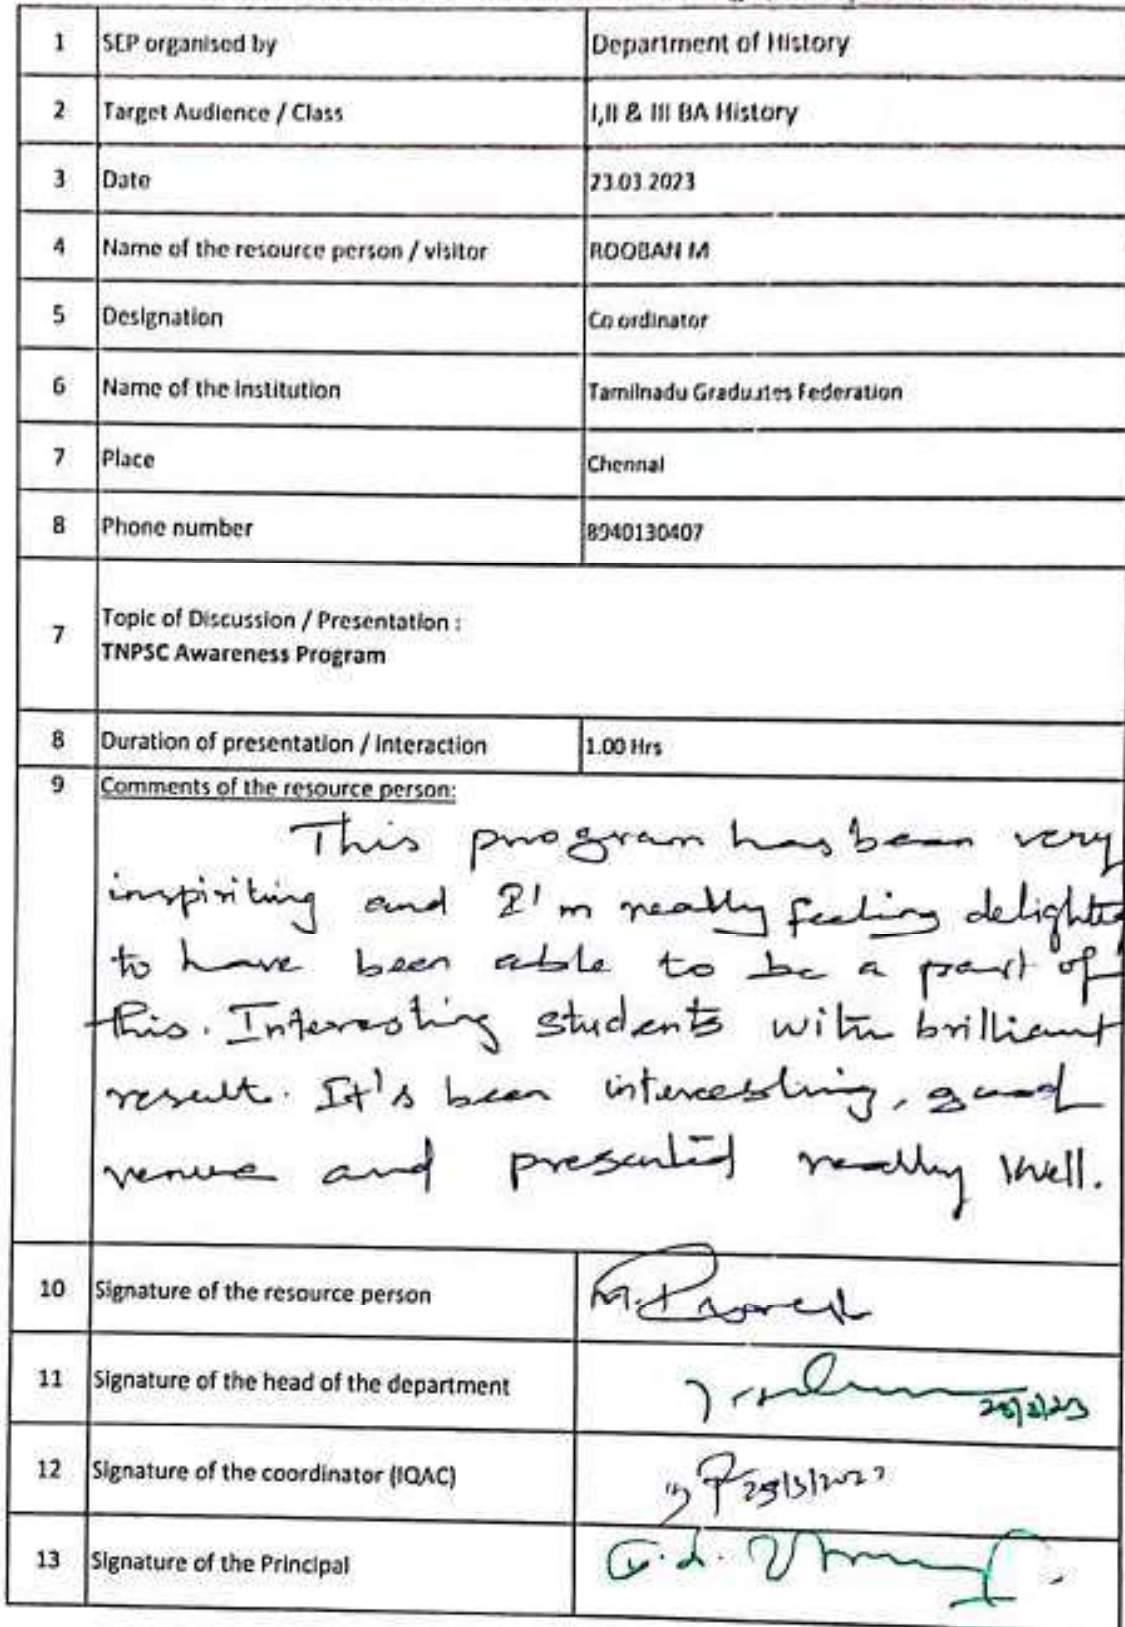 1 SEP organised by Department of History
2 Target Audience / Class I,II & III BA History
3 Date 23.03.2023
4 Name of the resource person / visitor ROOBAN M
5 Designation Co ordinator
6 Name of the Institution Tamilnadu Graduates Federation
7 Place Chennai
8 Phone number 8940130407
7 Topic of Discussion / Presentation :
TNPSC Awareness Program
8 Duration of presentation / Interaction 1.00 Hrs
9 Comments of the resource person:
This program has been very
inspiriting and I'm really feeling delighted
to have been able to be a part of
this. Interesting students with brilliant
result. It's been interesting, good
venue and presented really well.
10 Signature of the resource person
11 Signature of the head of the department
12 Signature of the coordinator (IQAC)
13 Signature of the Principal